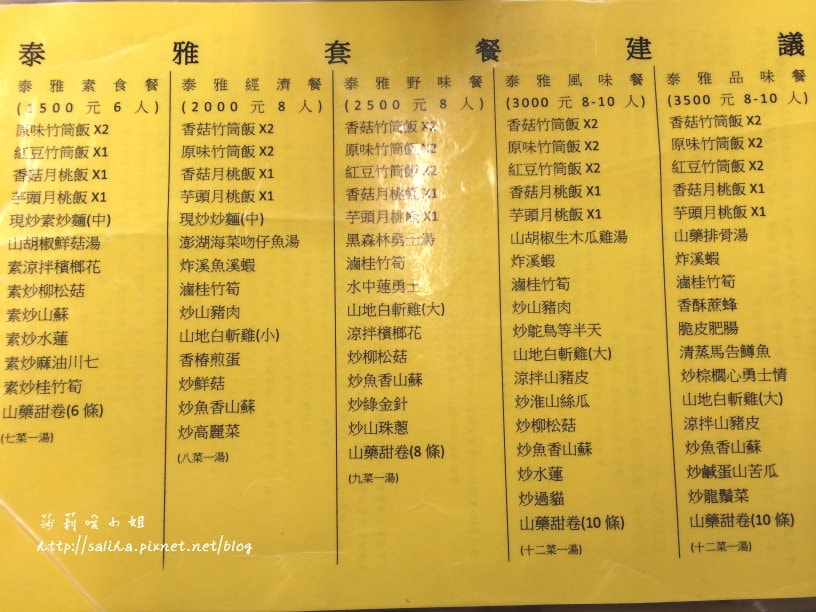 泰雅套餐建議
泰雅素食餐
(1500元6人)
原味竹筒飯 X2
紅豆竹筒飯 X1
香菇月桃飯 X1
芋頭月桃飯 X1
現炒素炒麵(中)
山胡椒鮮菇湯
素涼拌檳榔花
素炒柳松菇
素炒山蘇
素炒水蓮
素炒麻油川七
素炒桂竹筍
山藥甜卷(6 條)
(七菜一湯)
泰雅經濟餐
(2000元8人)
香菇竹筒飯 X2
原味竹筒飯 X2
香菇月桃飯 X1
芋頭月桃飯 X1
現炒炒麵(中)
澎湖海菜吻仔魚湯
炸溪魚溪蝦
滷桂竹筍
炒山豬肉
山地白斬雞(小)
香椿煎蛋
炒鮮菇
炒魚香山蘇
炒高麗菜
(八菜一湯)
泰雅野味餐
(2500元8人)
香菇竹筒飯 X2
原味竹筒飯 X2
紅豆竹筒飯 X2
香菇月桃飯 X1
芋頭月桃飯 X1
黑森林勇士湯
滷桂竹筍
水中蓮勇士
山地白斬雞(大)
涼拌檳榔花
炒柳松菇
炒魚香山蘇
炒綠金針
炒山珠蔥
山藥甜卷(8 條)
(九菜一湯)
泰雅風味餐
(3000元8-10人)
香菇竹筒飯 X2
原味竹筒飯 X2
紅豆竹筒飯 X2
香菇月桃飯 X1
芋頭月桃飯 X1
山胡椒生木瓜雞湯
炸溪蝦
滷桂竹筍
炒山豬肉
炒鴕鳥等半天
山地白斬雞(大)
涼拌山豬皮
炒淮山絲瓜
炒柳松菇
炒魚香山蘇
炒水蓮
炒過貓
山藥甜卷(10 條)
(十二菜一湯)
泰雅品味餐
(3500元8-10人)
香菇竹筒飯 X2
原味竹筒飯 X2
紅豆竹筒飯 X2
香菇月桃飯 X1
芋頭月桃飯 X1
山藥排骨湯
炸溪蝦
滷桂竹筍
香酥蔗蜂
脆皮肥腸
清蒸馬告鱒魚
炒棕櫚心勇士情
山地白斬雞(大)
涼拌山豬皮
炒魚香山蘇
炒鹹蛋山苦瓜
炒龍鬚菜
山藥甜卷(10 條)
(十二菜一湯)
莎莉哈小姐
http://saliha.pixnet.net/blog